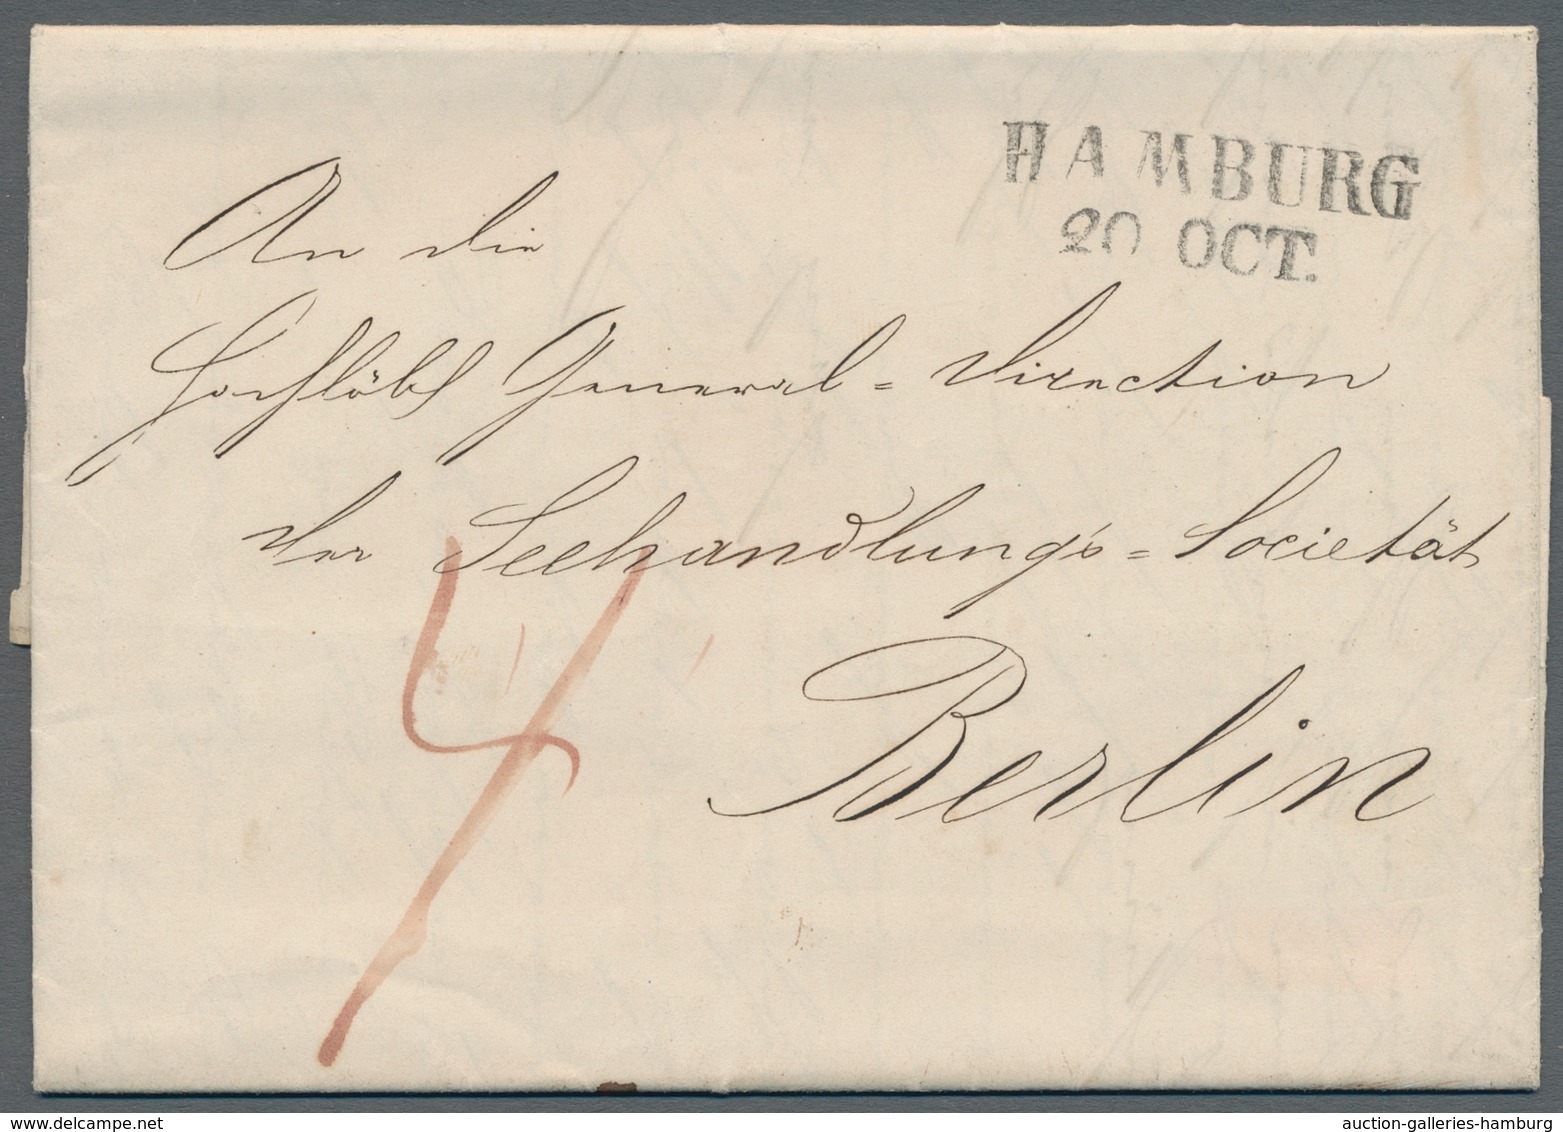 HAMBURG
20 OCT.
An die
Hochlöbl General = Direction
der Seehandlungs = Societät
Berlin
4
www.delcampe.net
auction-galleries-hamburg